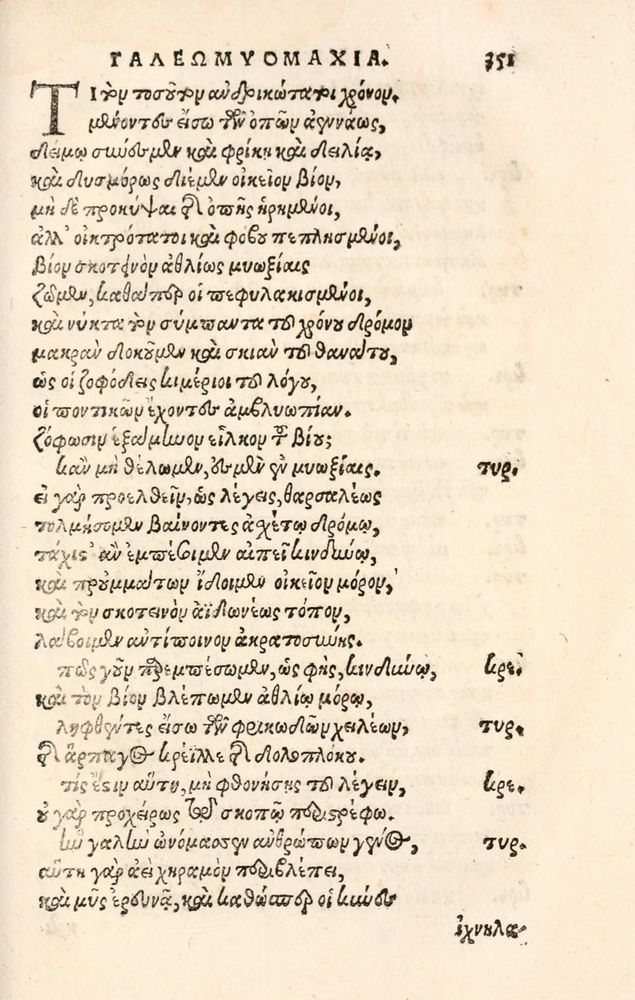 ΓΑΛΕΩΜΥΟΜΑΧΙΑ. 351
Τί τὸν τοσοῦτον ἀνδρικώτατοι χρόνον.
μένοντες εἴσω τῶν ὀπῶν ἀεννάως,
δειμῷ σύνεσμεν καὶ φρίκῃ καὶ δειλίᾳ,
καὶ δυσμόρως δίεμεν οἰκεῖον βίον,
μὴ δὲ προκύψαι τῆς ὀπῆς ᾑρημένοι,
ἀλλ' οἰκτρότατοι καὶ φόβου πεπλησμένοι,
βίον σκοτεινὸν ἀθλίως μυωξίαις
ζῶμεν, καθάπερ οἱ πεφυλακισμένοι,
καὶ νύκτα τὸν σύμπαντα τοῦ χρόνου δρόμον
μακρὰν δοκοῦμεν καὶ σκιὰν τοῦ θανάτου,
ὡς οἱ ζοφώδεις κιμέριοι τοῦ λόγου,
οἱ ποντικῶν ἔχοντες ἀμβλυωπίαν.
ζόφωσιν ἑξάμηνον εἷλκον τοῦ βίου;
κἂν μὴ θέλωμεν, ἐσμὲν ἐν μυωξίαις. τυρ.
εἰ γὰρ προελθεῖν, ὡς λέγεις, θαρσαλέως
τολμήσομεν βαίνοντες ἀσχέτῳ δρόμῳ,
τάχιστ' ἂν ἐμπέσοιμεν αἰπεῖ κινδύνῳ,
καὶ πρὸ ὀμμάτων ἴδοιμεν οἰκεῖον μόρον,
καὶ τὸν σκοτεινὸν ἀϊδωνέως τόπον,
λάβοιμεν ἀντίποινον ἀκρατοσύνης.
πῶς γοῦν περιπέσωμεν, ὡς φῂς, κινδύνῳ, κρε.
καὶ τὸν βίον βλέπωμεν ἀθλίῳ μόρῳ,
ληφθέντες εἴσω τῶν φρικωδῶν χειλέων, τυρ.
τῆς ἅρπαγος κρεῖλλε τῆς δολοπλόκου.
τίς ἐστιν αὕτη, μὴ φθονήσῃς τοῦ λέγειν, κρε.
οὐ γὰρ προχείρως τῷ σκοπῷ περιστρέφω.
ἣν γαλῆν ὠνόμασεν ἀνθρώπων γένος, τυρ.
αὕτη γὰρ ἀεὶ χηραμὸν περιβλέπει,
καὶ μῦς ἐρευνᾷ, καὶ καθώσπερ οἱ κύνες
ἰχνηλα-